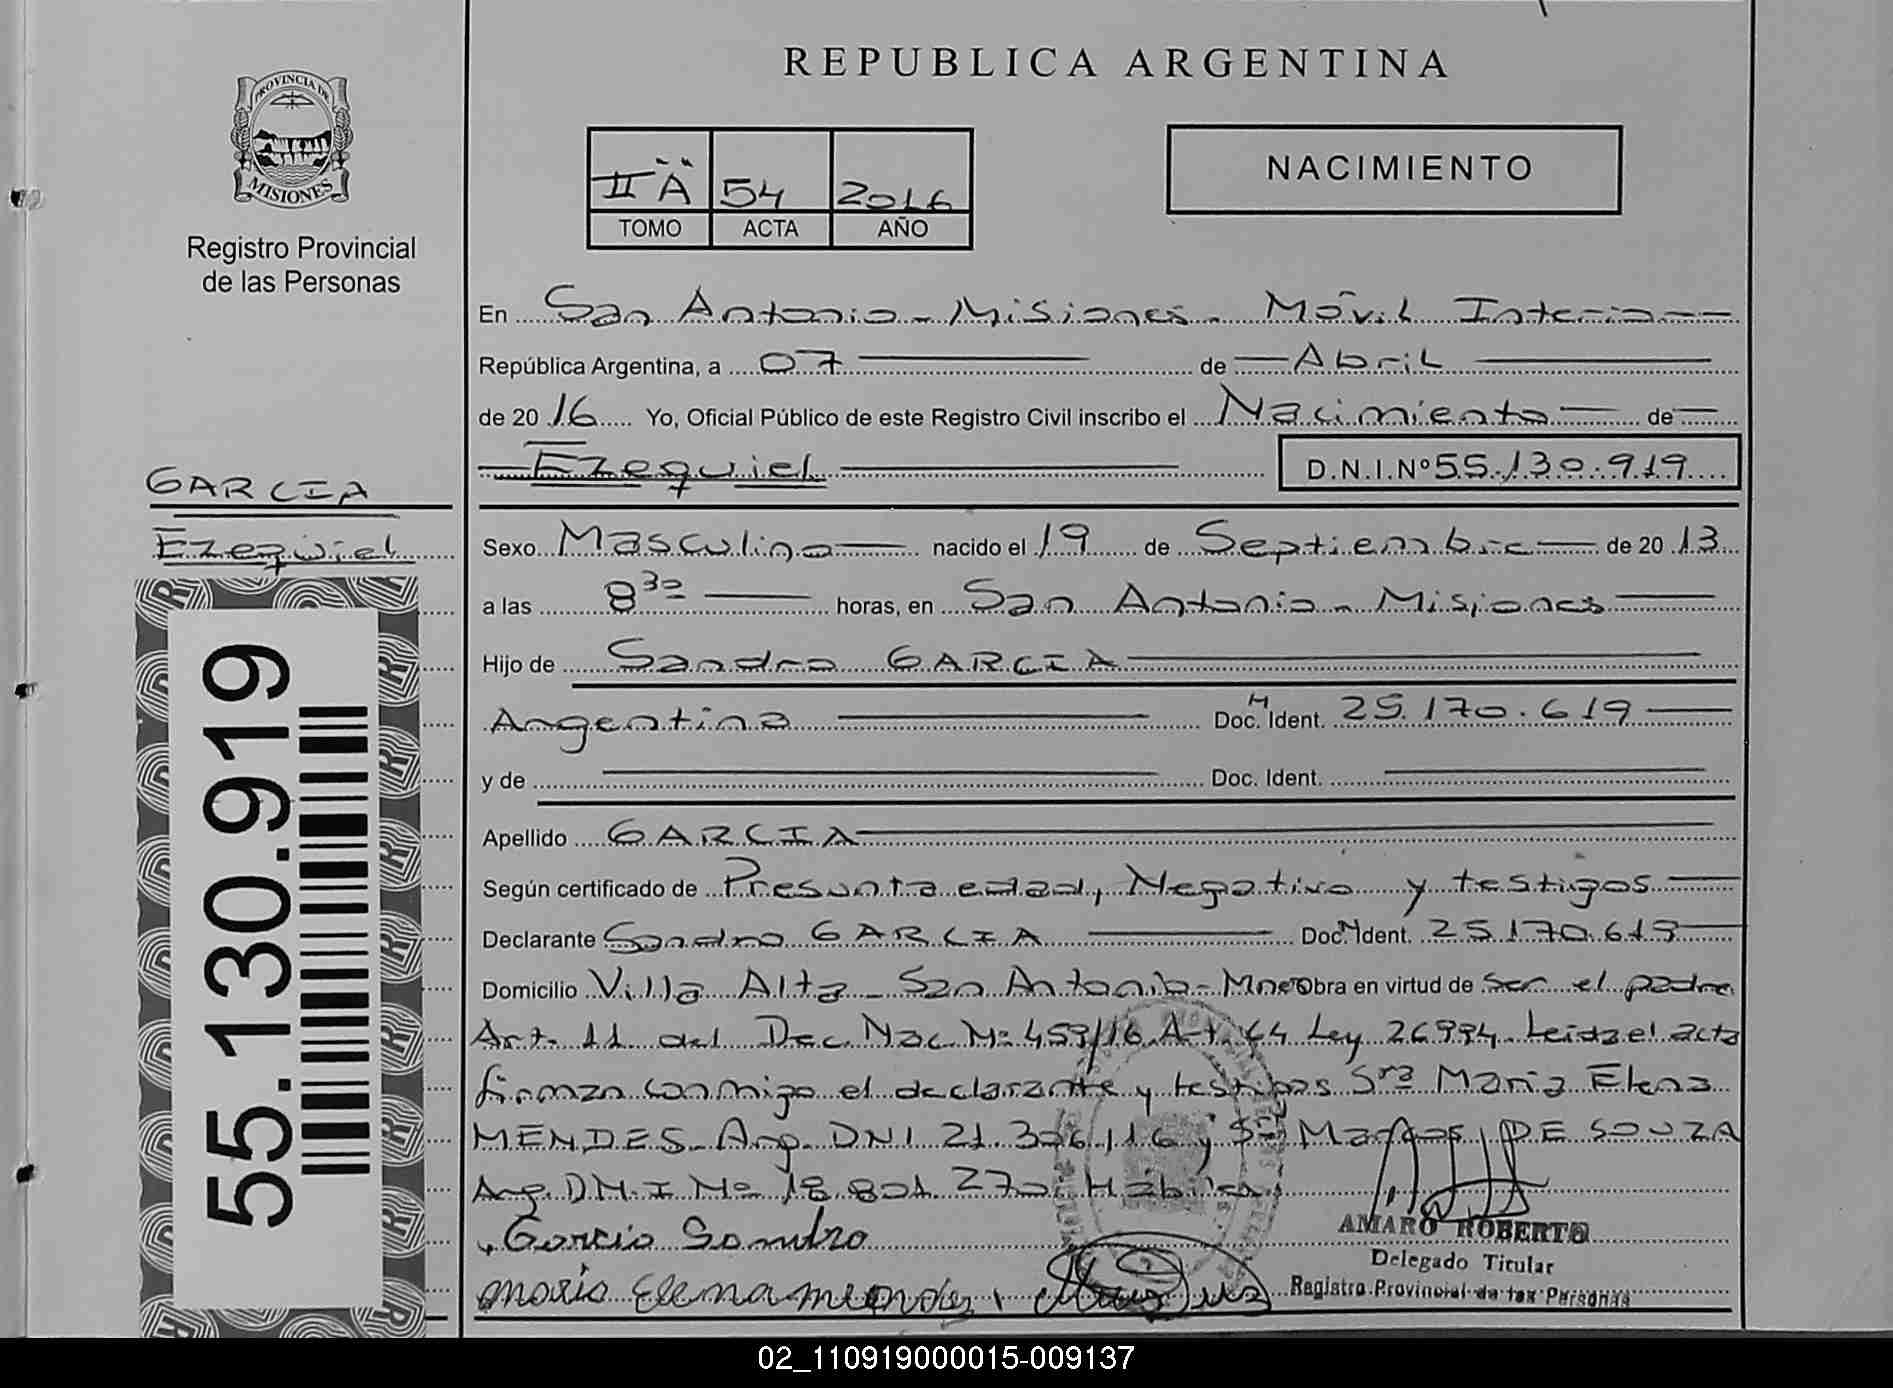 REPUBLICA ARGENTINA
PROVINCIA DE
MISIONES
Registro Provincial
de las Personas
II Ä 54 2016
TOMO ACTA AÑO
NACIMIENTO
En San Antonio - Misiones - Móvil Interio
República Argentina, a 07 de Abril
de 20 16 Yo, Oficial Público de este Registro Civil inscribo el Nacimiento de
Ezequiel D.N.I.Nº 55.130.919
GARCIA
Ezequiel
55.130.919
Sexo Masculino nacido el 19 de Septiembre de 20 13
a las 8³⁰ horas, en San Antonio - Misiones
Hijo de Sandro GARCIA
Argentino Doc. M Ident. 25.170.619
y de Doc. Ident.
Apellido GARCIA
Según certificado de Presunta edad, Negativo y testigos
Declarante Sandro GARCIA Doc. M Ident. 25.170.619
Domicilio Villa Alta - San Antonio - Mnes Obra en virtud de ser el padre
Art. 11 del Dec. Nac. Nº 459/16 Art. 64 Ley 26994. Leida el acta
firman conmigo el declarante y testigos Sra Maria Elena
MENDES - Arg. DNI 21.306.116 y Sr Marcos DE SOUZA
Arg. D.N.I Nº 18.801.270. Hábiles
Garcia Sandro
maria Elena mendes
AMARO ROBERTO
Delegado Titular
Registro Provincial de las Personas
02_110919000015-009137